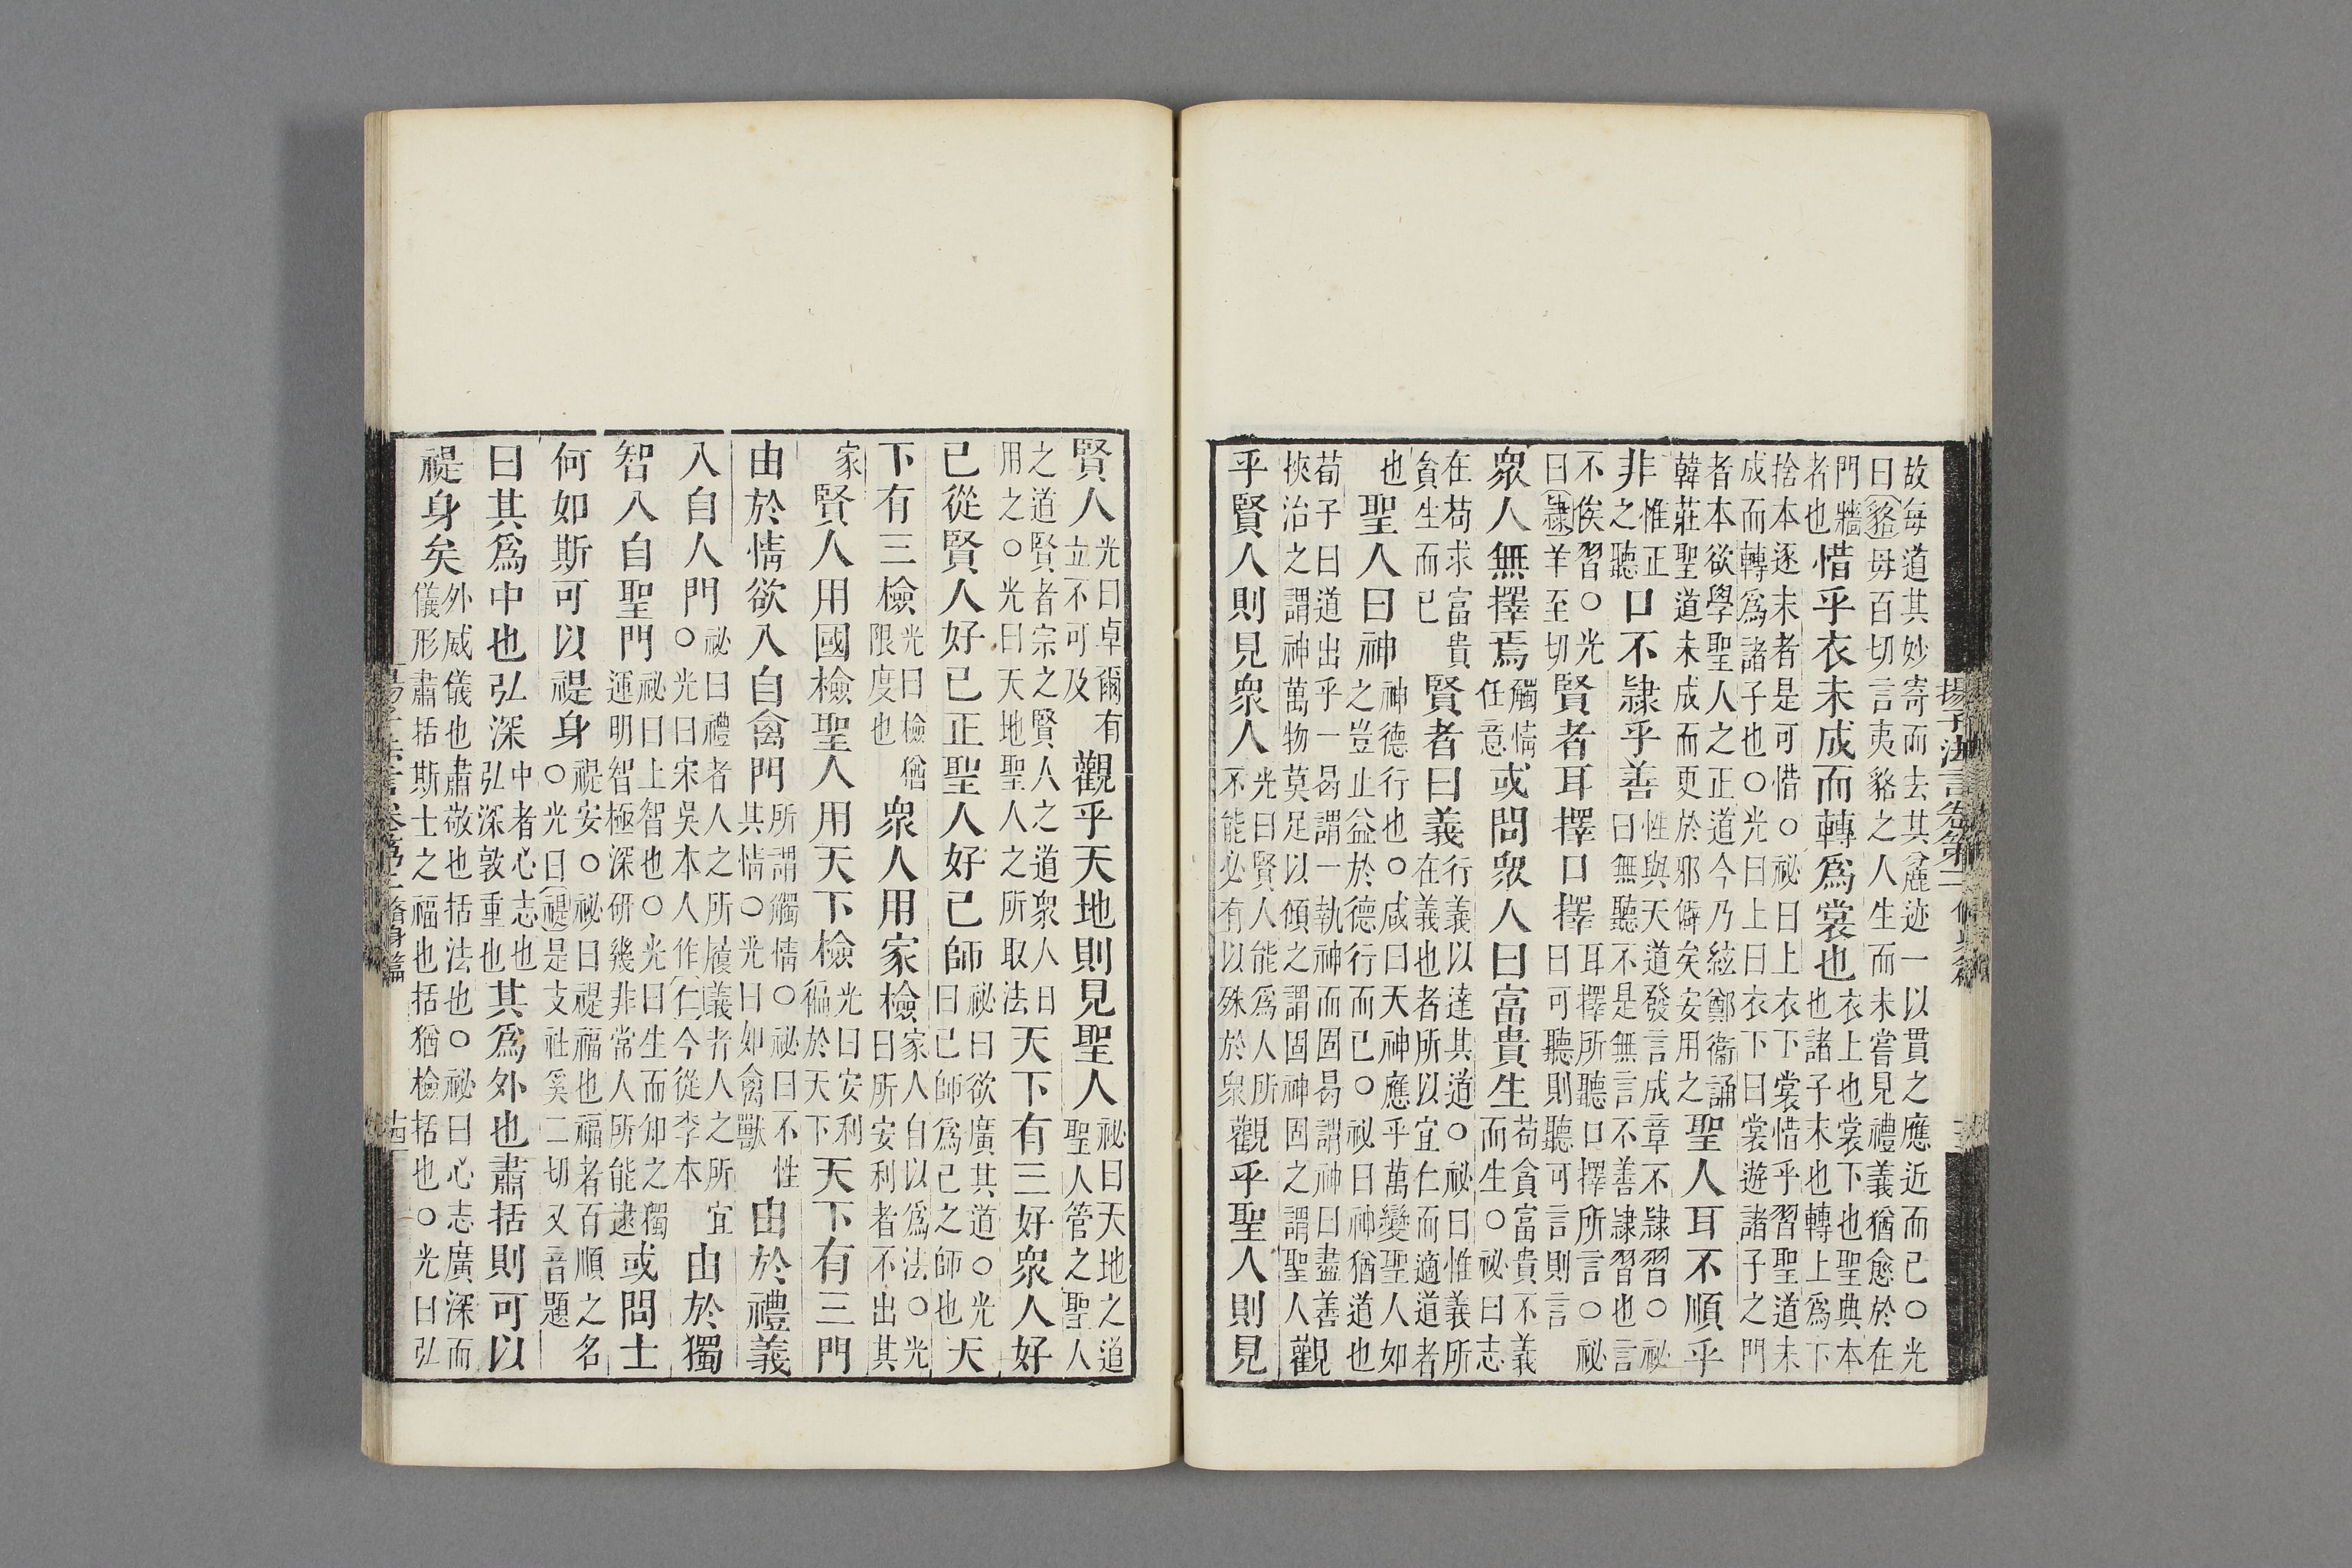 故每道其妙寄而去其麄迹一以貫之應近而已○光
曰貉毋百切言夷貉之人生而未嘗見禮義猶愈於在
門牆者也惜乎衣未成而轉爲裳也衣上也裳下也聖典本也諸子末也轉上爲下
捨本逐末者是可惜○祕曰上衣下裳惜乎習聖道未
成而轉爲諸子也○光曰上曰衣下曰裳遊諸子之門
者本欲學聖人之正道今乃絃鄭衞誦韓莊聖道未成而更於邪僻矣安用之聖人耳不順乎
非惟正之聽口不隷乎善性與天道發言成章不隷習○祕曰無聽不是無言不善隷習也言
不俟習○光曰隷羊至切賢者耳擇口擇耳擇所聽口擇所言○祕曰可聽則聽可言則言
衆人無擇焉觸情任意或問衆人曰富貴生苟貪富貴不義而生○祕曰志
在苟求富貴貪生而已賢者曰義行義以達其道○祕曰惟義所在義也者所以宜仁而適道者
也聖人曰神神德行也○咸曰天神應乎萬變聖人如之豈止益於德行而已○祕曰神猶道也
荀子曰道出乎一曷謂一執神而固曷謂神曰盡善挾治之謂神萬物莫足以傾之謂固神固之謂聖人觀
乎賢人則見衆人光曰賢人能爲人所不能必有以殊於衆觀乎聖人則見
揚子法言卷第二
賢人光曰卓爾有立不可及觀乎天地則見聖人祕曰天地之道聖人管之聖人
之道賢者宗之賢人之道衆人日用之○光曰天地聖人之所取法天下有三好衆人好
己從賢人好己正聖人好己師祕曰欲廣其道○光曰己師爲己之師也天
下有三檢光曰檢猶限度也衆人用家檢家人自以爲法○光曰所安利者不出其
家賢人用國檢聖人用天下檢光曰安利徧於天下天下有三門
由於情欲入自禽門所謂觸情○祕曰不性其情○光曰如禽獸由於禮義
入自人門祕曰禮者人之所履義者人之所宜○光曰宋吳本人作仁今從李本由於獨
智入自聖門祕曰上智也○光曰生而知之獨運明智極深研幾非常人所能逮或問士
何如斯可以禔身禔安○祕曰禔福也福者百順之名○光曰禔是支社奚二切又音題
曰其爲中也弘深中者心志也弘深敦重也其爲外也肅括則可以
禔身矣外威儀也肅敬也括法也○祕曰心志廣深而儀形肅括斯士之福也括猶檢括也○光曰弘